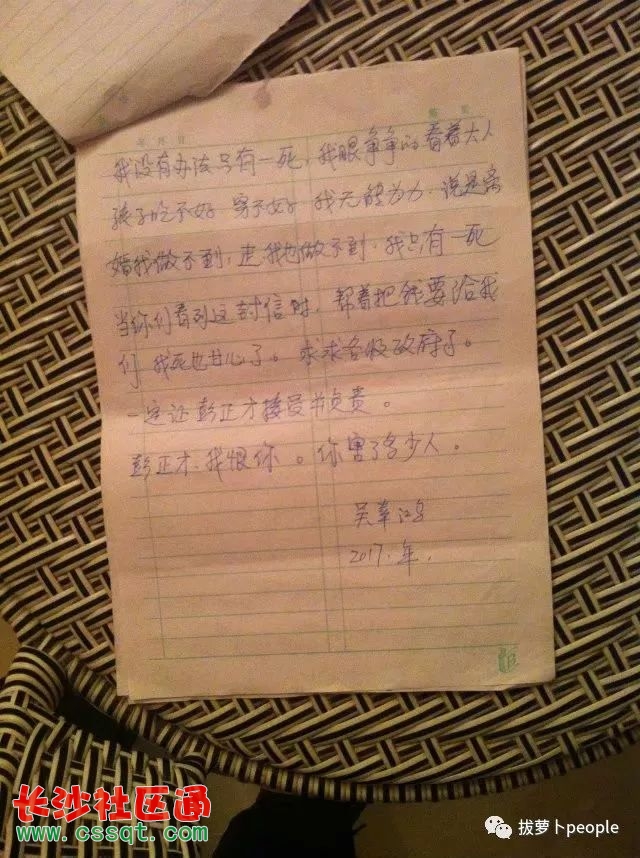 我没有办法只有一死，我眼争争的看着大人
孩子吃不好 穿不好 我无能为力．说是离
婚我做不到，走我也做不到．我只有一死
当你们看到这封信时，帮着把钱要给我
们 我死也甘心了。求求各级政府了。
一定让彭正才 负责。
彭正才．我恨你。你害了多少人。
吴
2017．年．
长沙社区通
www.cssqt.com
拔萝卜people